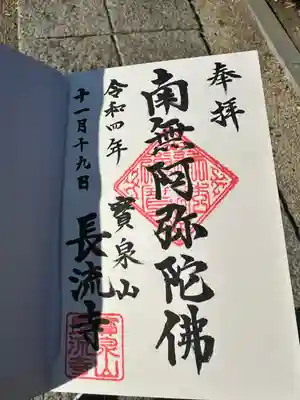 奉拝
南無阿弥陀佛
寳泉山
長流寺
令和四年
十一月十九日
寳泉山
長流寺